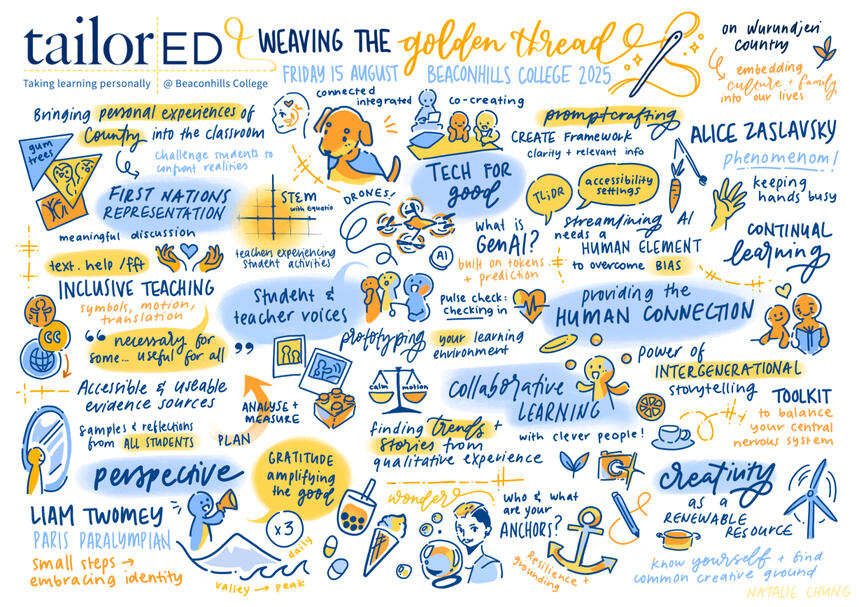 tailorED
Taking learning personally @ Beaconhills College
WEAVING THE golden thread
FRIDAY 15 AUGUST BEACONHILLS COLLEGE 2025
on Wurundjeri
Country
embedding
culture + family
into our lives
Bringing personal experiences of
Country into the classroom
gum
trees
challenge students to
confront realities
FIRST NATIONS
REPRESENTATION
meaningful discussion
connected
integrated
co-creating
STEM
with Equatio
teachers experiencing
student activities
DRONES!
TECH FOR
good
promptcrafting
CREATE Framework
clarity + relevant info
TL;DR
accessibility
settings
what is
GenAI?
built on tokens
+ prediction
AI
streamlining AI
needs a
HUMAN ELEMENT
to overcome BIAS
ALICE ZASLAVSKY
phenomenom!
keeping
hands busy
CONTINUAL
learning
text.help/fft
INCLUSIVE TEACHING
symbols, motion,
translation
CC
“ necessary for
some... useful for all ”
Accessible & useable
evidence sources
samples & reflections
from ALL STUDENTS
ANALYSE +
MEASURE
PLAN
Student &
teacher voices
pulse check:
checking in
prototyping your learning
environment
calm
motion
providing the
HUMAN CONNECTION
collaborative
LEARNING
with clever people!
power of
INTERGENERATIONAL
storytelling
TOOLKIT
to balance
your central
nervous system
finding trends +
stories from
qualitative experience
perspective
GRATITUDE
amplifying
the good
x3
daily
LIAM TWOMEY
PARIS PARALYMPIAN
small steps →
embracing identity
valley → peak
wonder
WHO & what
are your
ANCHORS?
Resilience +
grounding
creativity
as a
RENEWABLE
RESOURCE
know yourself + find
common creative ground
NATALIE CHUNG